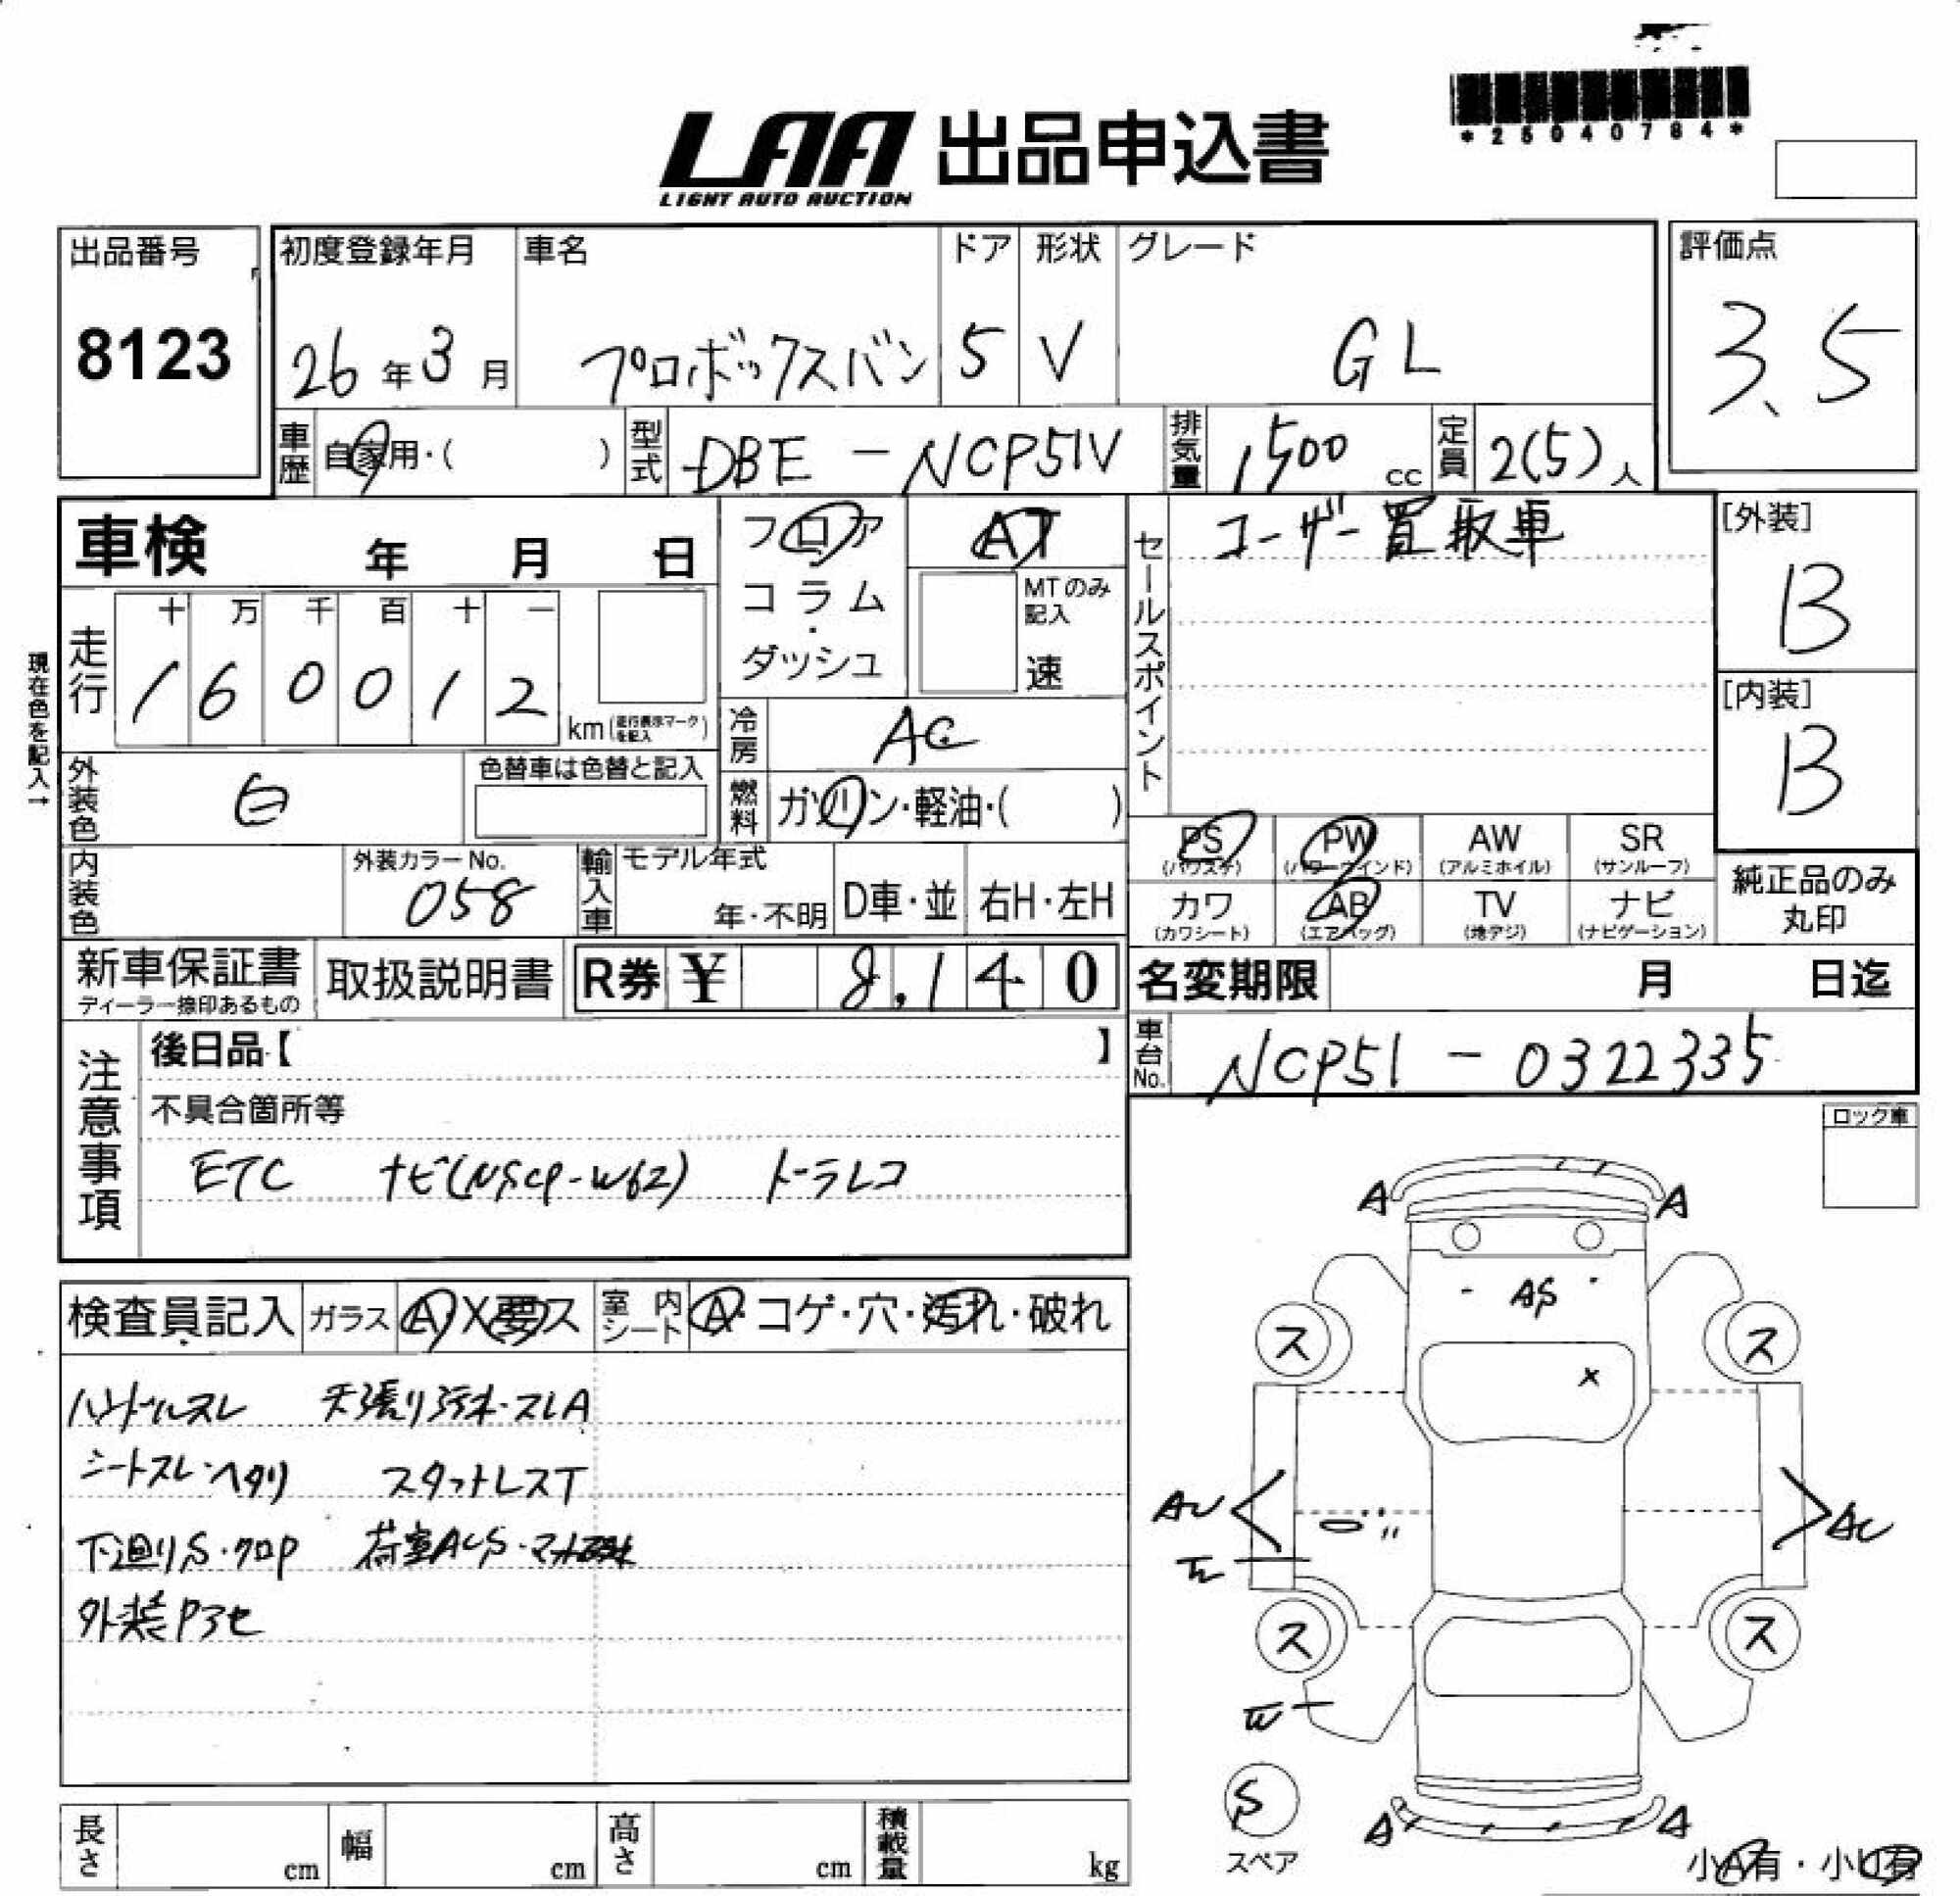 *25040784*
LAA 出品申込書
LIGHT AUTO AUCTION
出品番号
8123
初度登録年月
26年3月
車名
プロボックスバン
ドア
5
形状
V
グレード
GL
評価点
3.5
車歴 自家用・( )
型式 DBE-NCP51V
排気量 1,500 cc
定員 2(5)人
車検 年 月 日
フロア
コラム
・
ダッシュ
AT
MTのみ
記入
速
セールスポイント
ユーザー買取車
[外装]
B
[内装]
B
現在色を記入→
走行
十 万 千 百 十 一
1 6 0 0 1 2
km(走行表示マークを記入)
冷房 AC
外装色 白
色替車は色替と記入
燃料 ガソリン・軽油・( )
内装色
外装カラーNo.
058
輸入車
モデル年式
年・不明
D車・並
右H・左H
PS
(パワステ)
PW
(パワーウインド)
AW
(アルミホイル)
SR
(サンルーフ)
カワ
(カワシート)
AB
(エアバッグ)
TV
(地デジ)
ナビ
(ナビゲーション)
純正品のみ
丸印
新車保証書
ディーラー捺印あるもの
取扱説明書
R券 ¥ 8,140
名変期限 月 日迄
注意事項
後日品【 】
車台No. NCP51-0322335
不具合箇所等
ETC ナビ(NSCP-W62) ドラレコ
ロック車
検査員記入
ガラス A X 要 ス
室内シート A・コゲ・穴・汚れ・破れ
ハンドルスレ 天張り汚れ・スレA
シートスレ・ヘタリ スタットレスT
下廻りS・クロP
荷室ACS・
外装Pアセ
A A
AS
ス ス
X
AU
AU
ス ス
S
スペア
A A
小A有・小U有
長さ cm
幅 cm
高さ cm
積載量 kg